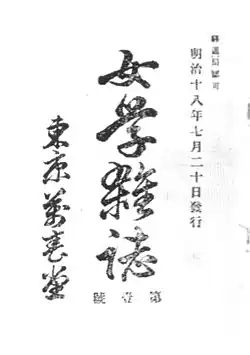 明治十八年七月二十日發行
女學雜誌
第壹號
東京萬春堂